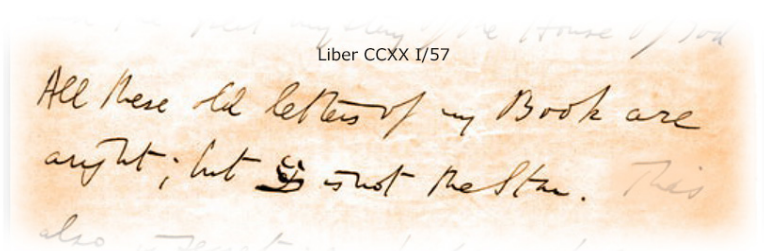 the House of God
Liber CCXX I/57
All these old letters of my Book are
aright; but צ is not the Star. This
also